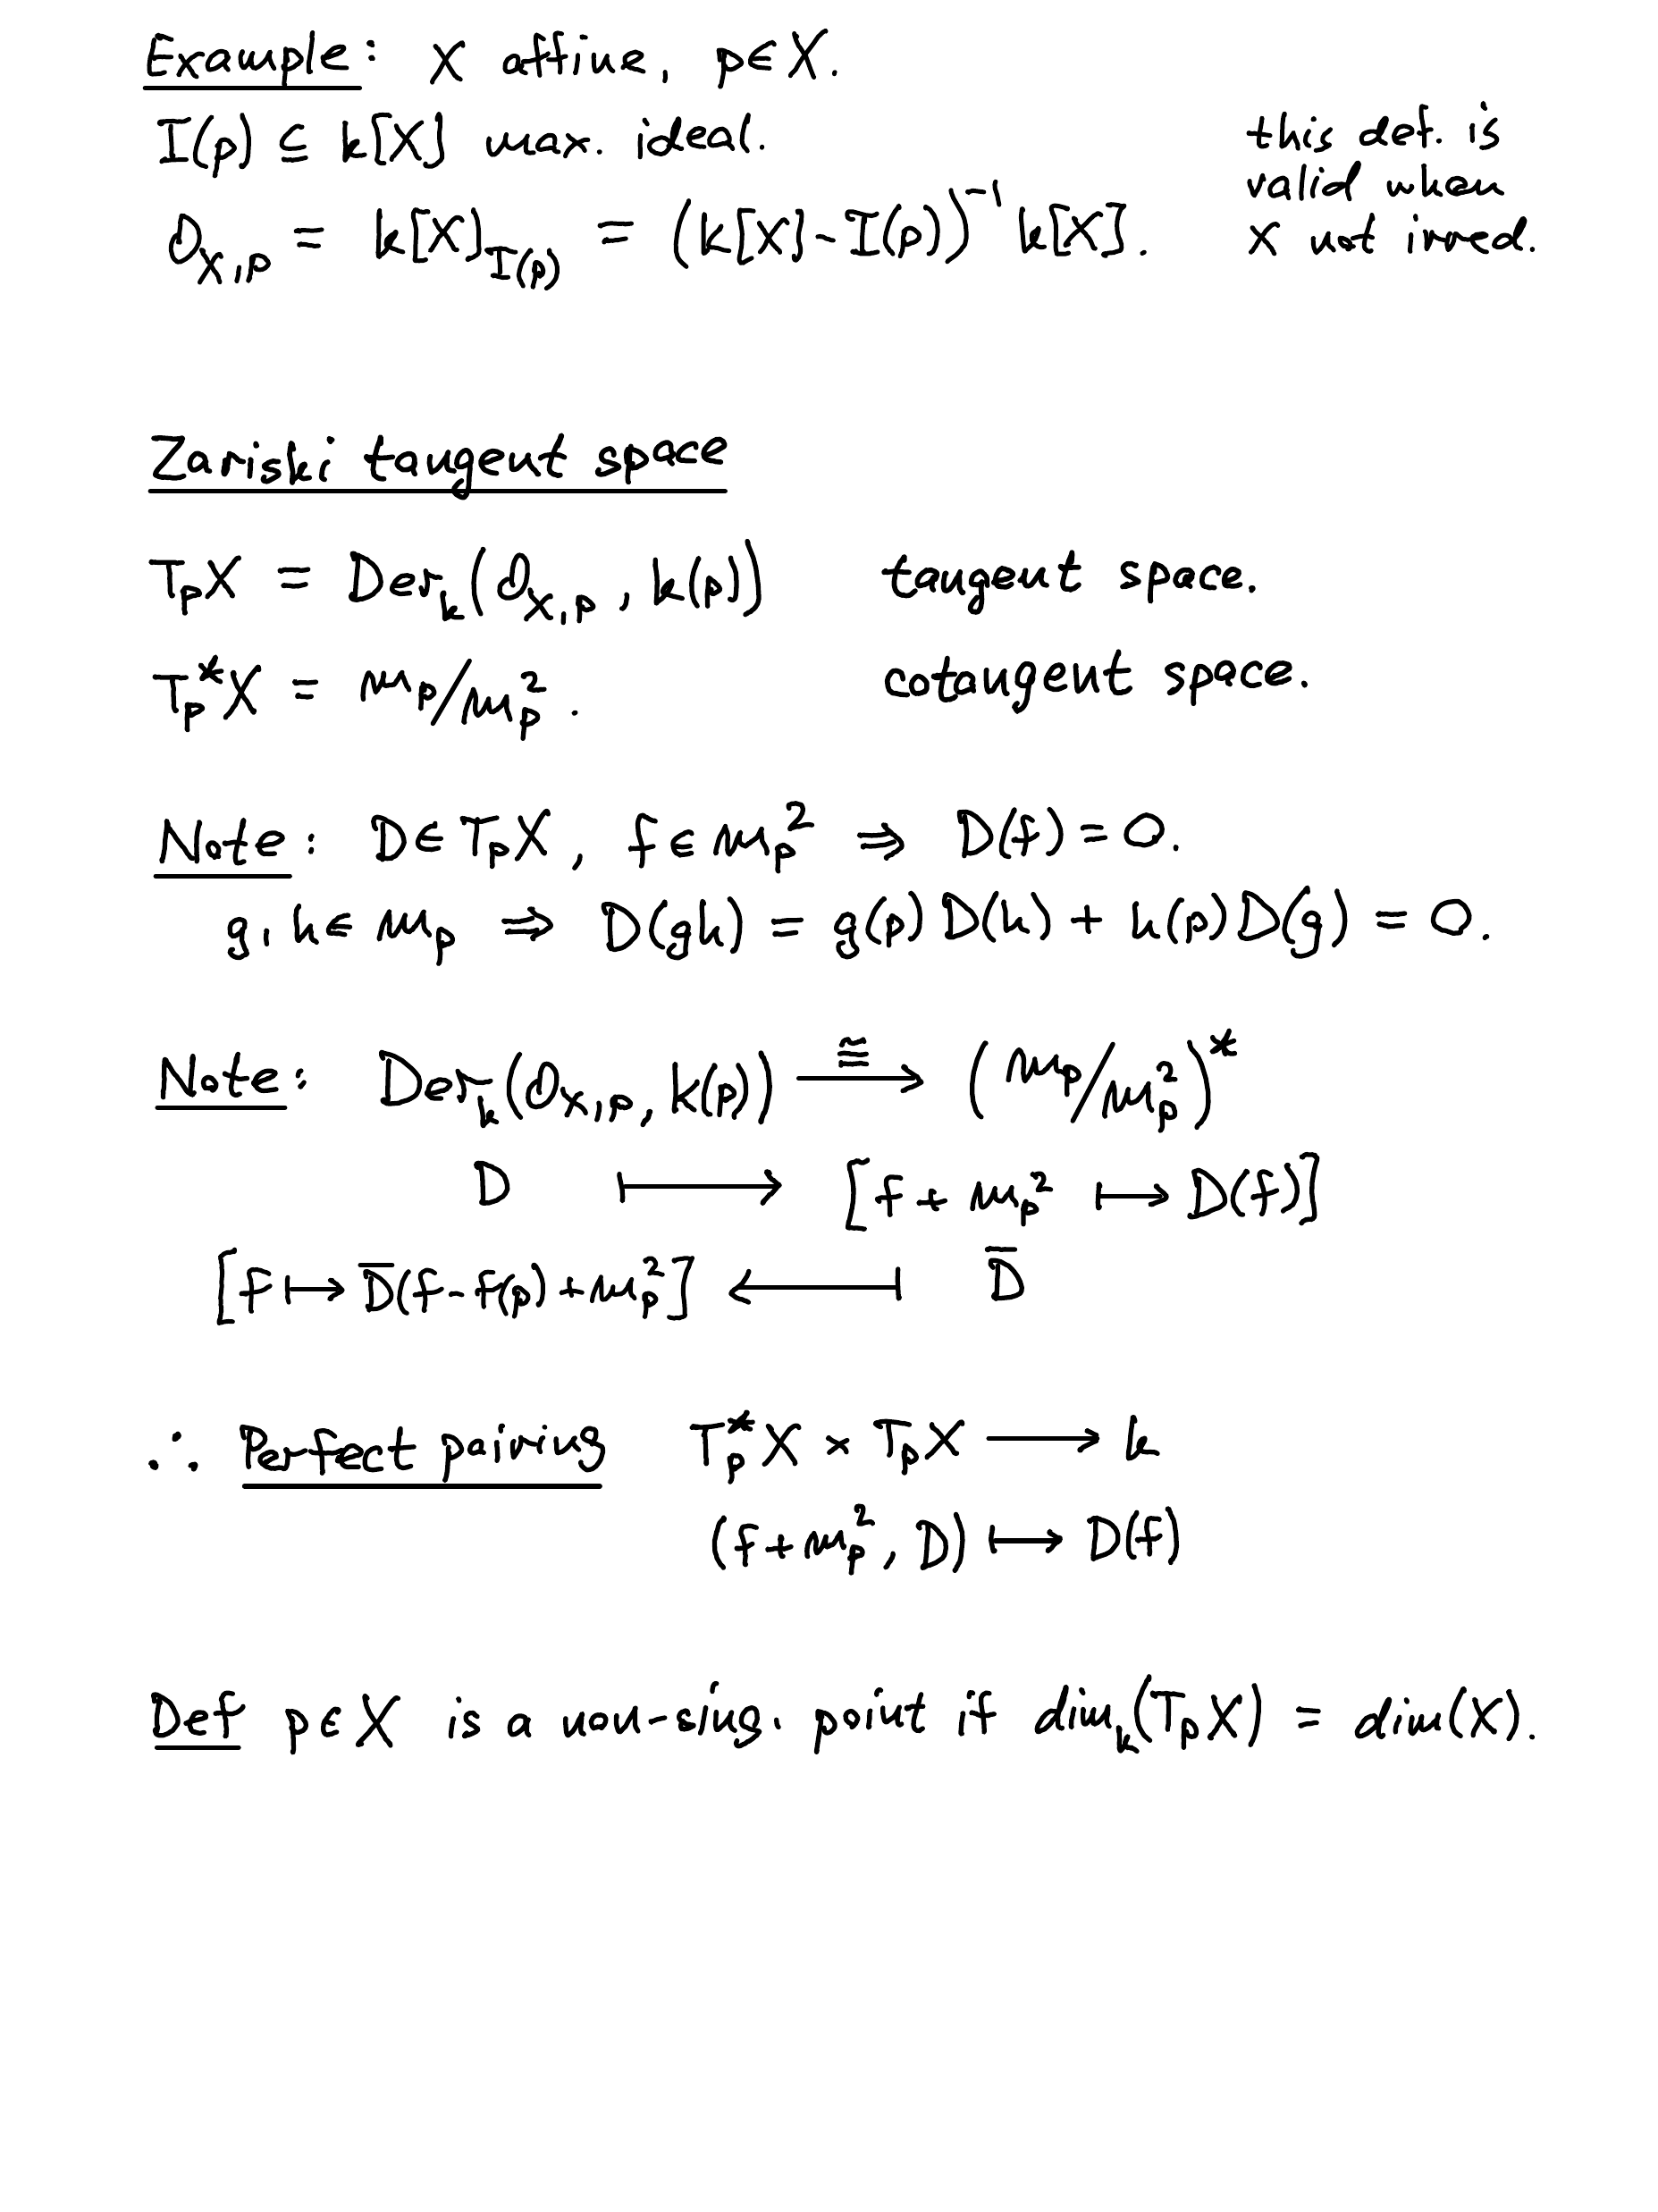 Example: X affine, p∈X.
I(p) ⊆ k[X] max. ideal.
O_{X,p} = k[X]_{I(p)} = (k[X]-I(p))^{-1} k[X].
this def. is
valid when
X not irred.
Zariski tangent space
T_pX = Der_k(O_{X,p}, k(p)) tangent space.
T_p^*X = m_p/m_p^2. cotangent space.
Note: D∈T_pX, f∈m_p^2 ⇒ D(f)=0.
g,h∈m_p ⇒ D(gh) = g(p)D(h) + h(p)D(g) = 0.
Note: Der_k(O_{X,p}, k(p)) ≅⟶ (m_p/m_p^2)^*
D ⟼ [f + m_p^2 ↦ D(f)]
[f ↦ D̄(f-f(p)+m_p^2] ⟻ D̄
∴ Perfect pairing T_p^*X × T_pX ⟶ k
(f+m_p^2, D) ⟼ D(f)
Def p∈X is a non-sing. point if dim_k(T_pX) = dim(X).